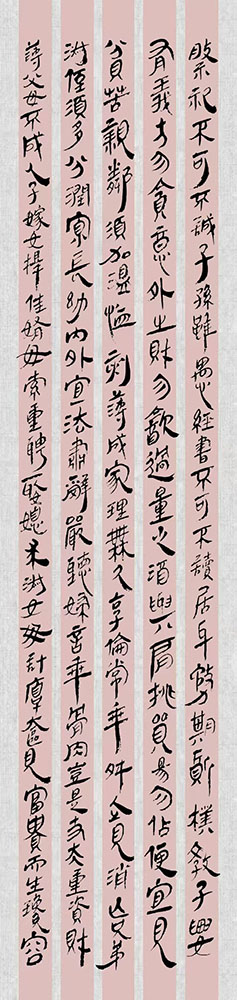 祭祀不可不誠子孫雖愚經書不可不讀居身務期質樸教子要
有義方勿貪意外之財勿飲過量之酒與肩挑貿易勿佔便宜見
貧苦親鄰須加溫恤刻薄成家理無久享倫常乖舛立見消亡兄弟
叔侄須多分潤寡長幼內外宜法肅辭嚴聽婦言乖骨肉豈是丈夫重資財
薄父母不成人子嫁女擇佳婿毋索重聘娶媳求淑女毋計厚奩見富貴而生讒容